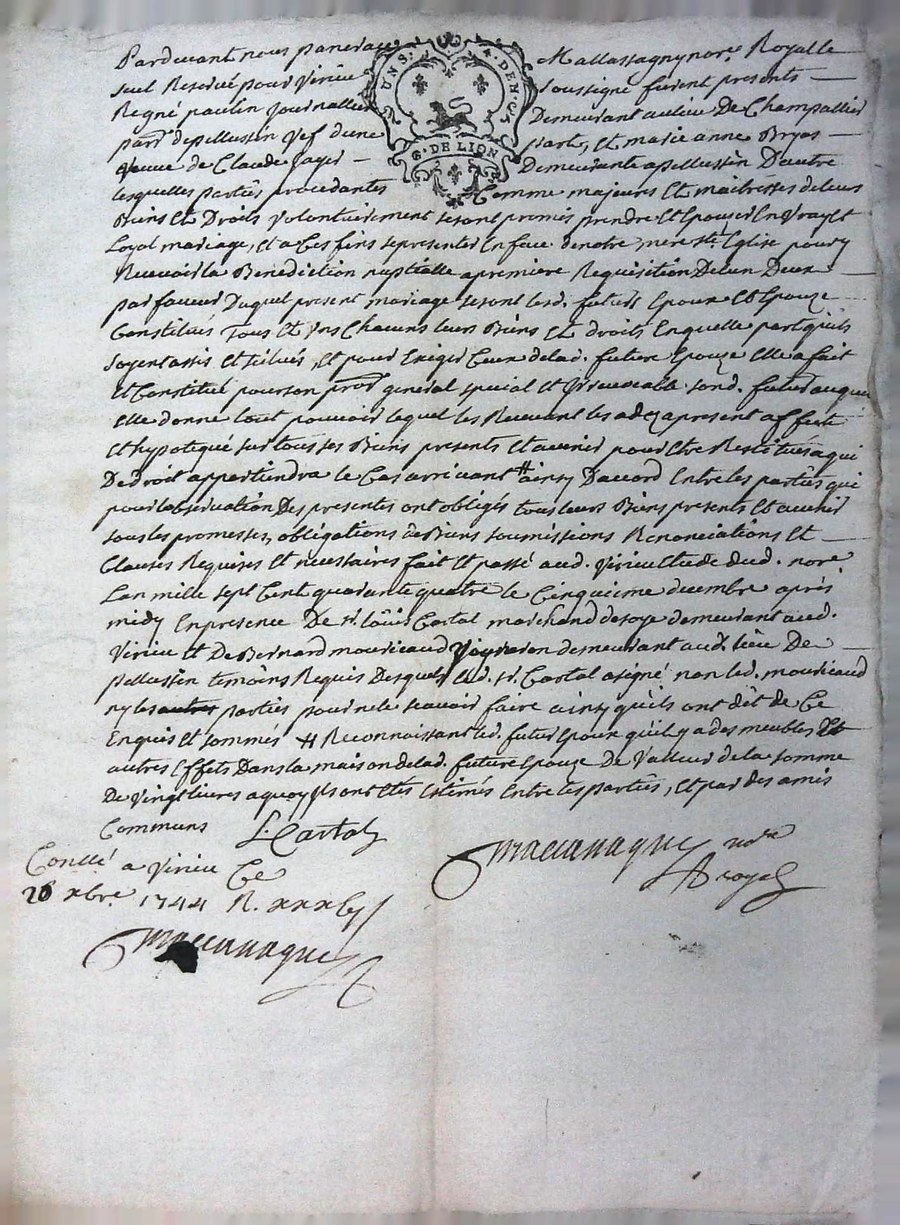 Pardevant nous pancrace Mallassagny nore. Royalle
seul Reservé pour Virieu soussigné furent presents
Regné paulin Journallier Demeurant au lieu De Champallier
parr. de pellussin Vef d'une part, Et marie anne Bryas
Veuve de Claude Demeurante a pellussin D'autre
UN S. 4. DEN.
G. DE LION
lesquelles parties procedantes Comme majeurs Et maitresses de leurs
Biens Et Droits volontairement se sont promis prendre Et Epouser En Vray Et
Loyal mariage, Et a Ces fins se presenter En face de notre mere ste. Eglise pour y
Recevoir la Benediction nuptialle a premiere Requisition De l'un Deux
par faveur Duquel present mariage se sont lesd. futurs Epoux Et Epouze
Constitués Tous Et Uns Chacuns leurs Biens Et droits En quelle part quils
soyent assis Et situés, Et pour Exiger Ceux de lad. future Epouze Elle a fait
Et Constitué pour son procr. general special Et Irrevocable sond. futur auquel
elle donne tout pouvoir lequel les Recevant les a dez a present affecté
Et hypotequé sur tous ses Biens presents Et avenir pour Etre Restitues a qui
De droit appartiendra le Cas arrivant # ainsy D'accord Entre les parties qui
pour l'observation Des presentes ont obligés tous leurs Biens presents Et avenir
sous les promesses, obligations de Biens soumissions Renonciations Et
Clauses Requises Et necessaires fait Et passé aud. Virieu Etude dud. nore
L'an mille sept Cent quarante quatre le Cinquieme decembre apres
midy En presence De sr. loüis Cartal marchand de soye demeurant aud.
Virieu Et De Bernard mouricaud demeurant aud. lieu De
pellussin temoins Requis Desquels led. sr. Cartal a signé non led. mouricaud
ny les autres parties pour ne le scavoir faire ainsy quils ont dit de Ce
Enquis Et sommés # Reconnaissant led. futur Epoux quil y a des meubles Et
autres Effets Dans la maison de lad. future Epouze De Valleur de la somme
De Vingt livres a quoy Ils ont Etés Estimés Entre les parties, Et par des amis
Communs L. Cartal
Conllé a Virieu Ce
20 xbre. 1744 R.